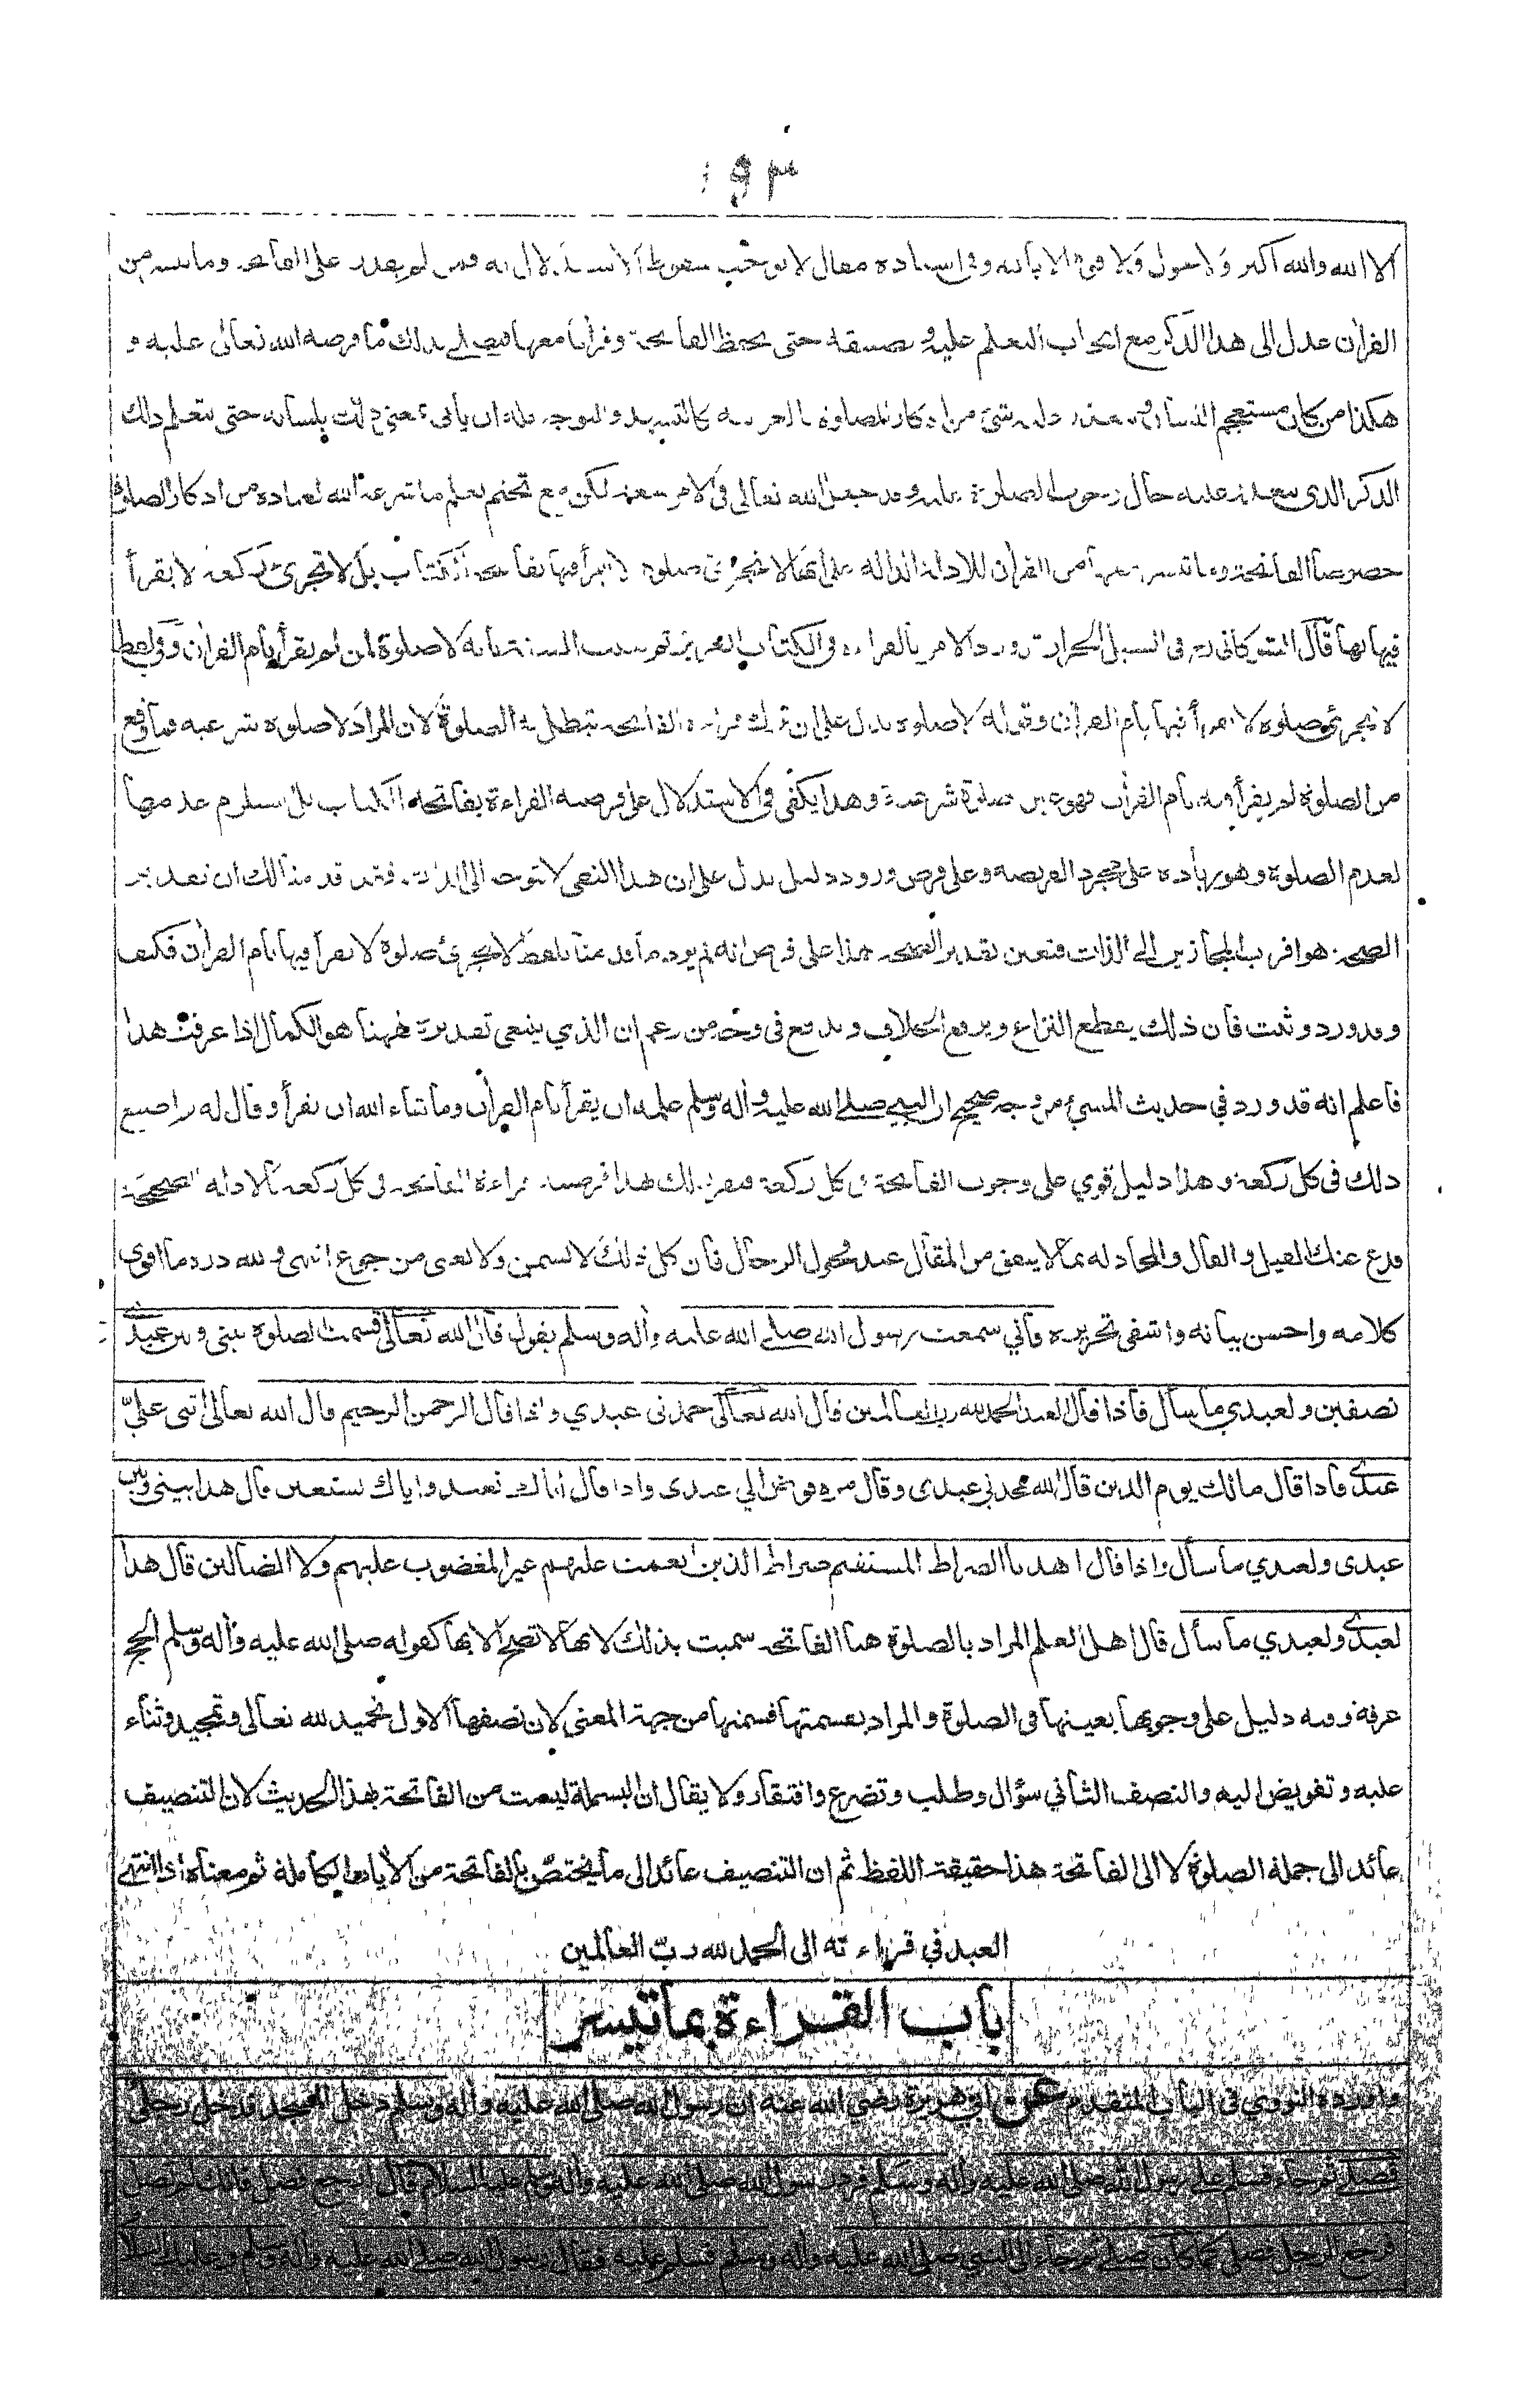 الا الله والله اكبر ولا حول ولا قوة الا بالله وفي اسناده مقال لا يوجب سقوط الاستدلال به فمن لم يقدر على الفاتحة وما تيسر من
القرآن عدل الى هذا الذكر مع ايجاب التعلم عليه حتى يحفظ الفاتحة وقرآنا معها فيصلي بذلك ما فرضه الله تعالى عليه و
هكذا من كان مستعجم اللسان من اذكار الصلوة بالعربية كالتشهد والتوجه فله ان يأتي بمعنى ذلك بلسانه حتى يتعلم ذلك
الذكر الذي تعذر عليه حال وجوب الصلوة عليه وقد جعل الله تعالى في الامر سعة لكن مع تحتم تعلم ما شرعه الله لعباده من اذكار الصلوة
خصوصا الفاتحة وما تيسر معها من القرآن للادلة الدالة على انها لا تجزئ صلوة لا يقرأ فيها بفاتحة الكتاب بل لا تجزئ ركعة لا يقرأ
فيها بها قال الشوكاني رح في السيل الجرار ورد الامر بالقراءة في الكتاب العزيز ثم بينت السنة بانه لا صلوة لمن لم يقرأ بأم القرآن وفي لفظ
لا تجزئ صلوة لا يقرأ فيها بأم القرآن وقوله لا صلوة يدل على ان ترك قراءة الفاتحة تبطل به الصلوة لان المراد لا صلوة شرعية فما وقع
من الصلوة لم يقرأ فيه بأم القرآن فهو غير صلوة شرعية وهذا يكفي في الاستدلال على فرضية القراءة بفاتحة الكتاب بل يستلزم عدمها
لعدم الصلوة وهو زيادة على مجرد الفرضية وعلى فرض ورود دليل يدل على ان هذا النفي لا يتوجه الى الذات فقد قدمنا لك ان تقدير
الصحة هو اقرب المجازين الى الذات فتعين تقدير الصحة هذا على فرض انه لم يرد ما قدمنا بلفظ لا تجزئ صلوة لا يقرأ فيها بأم القرآن فكيف
وقد ورد وثبت فان ذلك يقطع النزاع ويرفع الخلاف ويدفع في وجه من زعم ان الذي ينبغي تقديره ههنا هو الكمال اذا عرفت هذا
فاعلم انه قد ورد في حديث المسيء من وجه صحيح ان النبي صلى الله عليه وآله وسلم علمه ان يقرأ بأم القرآن وما شاء الله ان يقرأ وقال له اصنع
ذلك في كل ركعة وهذا دليل قوي على وجوب الفاتحة في كل ركعة فقرر لك هذا فرضية قراءة الفاتحة في كل ركعة بالادلة الصحيحة
فدع عنك القيل والقال والمجادلة بما لا ينفق من المقال عند فحول الرجال فان كل ذلك لا يسمن ولا يغني من جوع انتهى ولله دره ما اقوى
كلامه واحسن بيانه واشفى تحريره فاني سمعت رسول الله صلى الله عليه وآله وسلم يقول قال الله تعالى قسمت الصلوة بيني وبين عبدي
نصفين ولعبدي ما سأل فاذا قال العبد الحمد لله رب العالمين قال الله تعالى حمدني عبدي واذا قال الرحمن الرحيم قال الله تعالى اثنى عليّ
عبدي فاذا قال مالك يوم الدين قال الله مجدني عبدي وقال مرة فوض الي عبدي واذا قال اياك نعبد واياك نستعين قال هذا بيني وبين
عبدي ولعبدي ما سأل واذا قال اهدنا الصراط المستقيم صراط الذين انعمت عليهم غير المغضوب عليهم ولا الضالين قال هذا
لعبدي ولعبدي ما سأل قال اهل العلم المراد بالصلوة هنا الفاتحة سميت بذلك لانها لا تصح الا بها كقوله صلى الله عليه وآله وسلم الحج
عرفة وفيه دليل على وجوبها بعينها في الصلوة والمراد بقسمتها قسمتها من جهة المعنى لان نصفها الاول تحميد لله تعالى وتمجيد وثناء
عليه وتفويض اليه والنصف الثاني سؤال وطلب وتضرع وافتقار ولا يقال ان البسملة ليست من الفاتحة بهذا الحديث لان التنصيف
عائد الى جملة الصلوة لا الى الفاتحة هذا حقيقة اللفظ ثم ان التنصيف عائد الى ما يختص بالفاتحة من الآيات الكاملة ثم معناه اذا انتهى
العبد في قراءته الى الحمد لله رب العالمين
باب القراءة بما تيسر
واورده النووي في الباب المتقدم عن ابي هريرة رضي الله عنه ان رسول الله صلى الله عليه وآله وسلم دخل المسجد فدخل رجل
فصلى ثم جاء فسلم على رسول الله صلى الله عليه وآله وسلم فرد رسول الله صلى الله عليه وآله وسلم عليه السلام قال ارجع فصل فانك لم تصل
فرجع الرجل فصلى كما كان صلى ثم جاء الى النبي صلى الله عليه وآله وسلم فسلم عليه فقال رسول الله صلى الله عليه وآله وسلم وعليك السلام